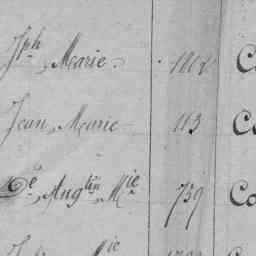 Jph Marie 1802 C
Jean Marie 113 Co
De Augtin Mie 759 Co
Mie